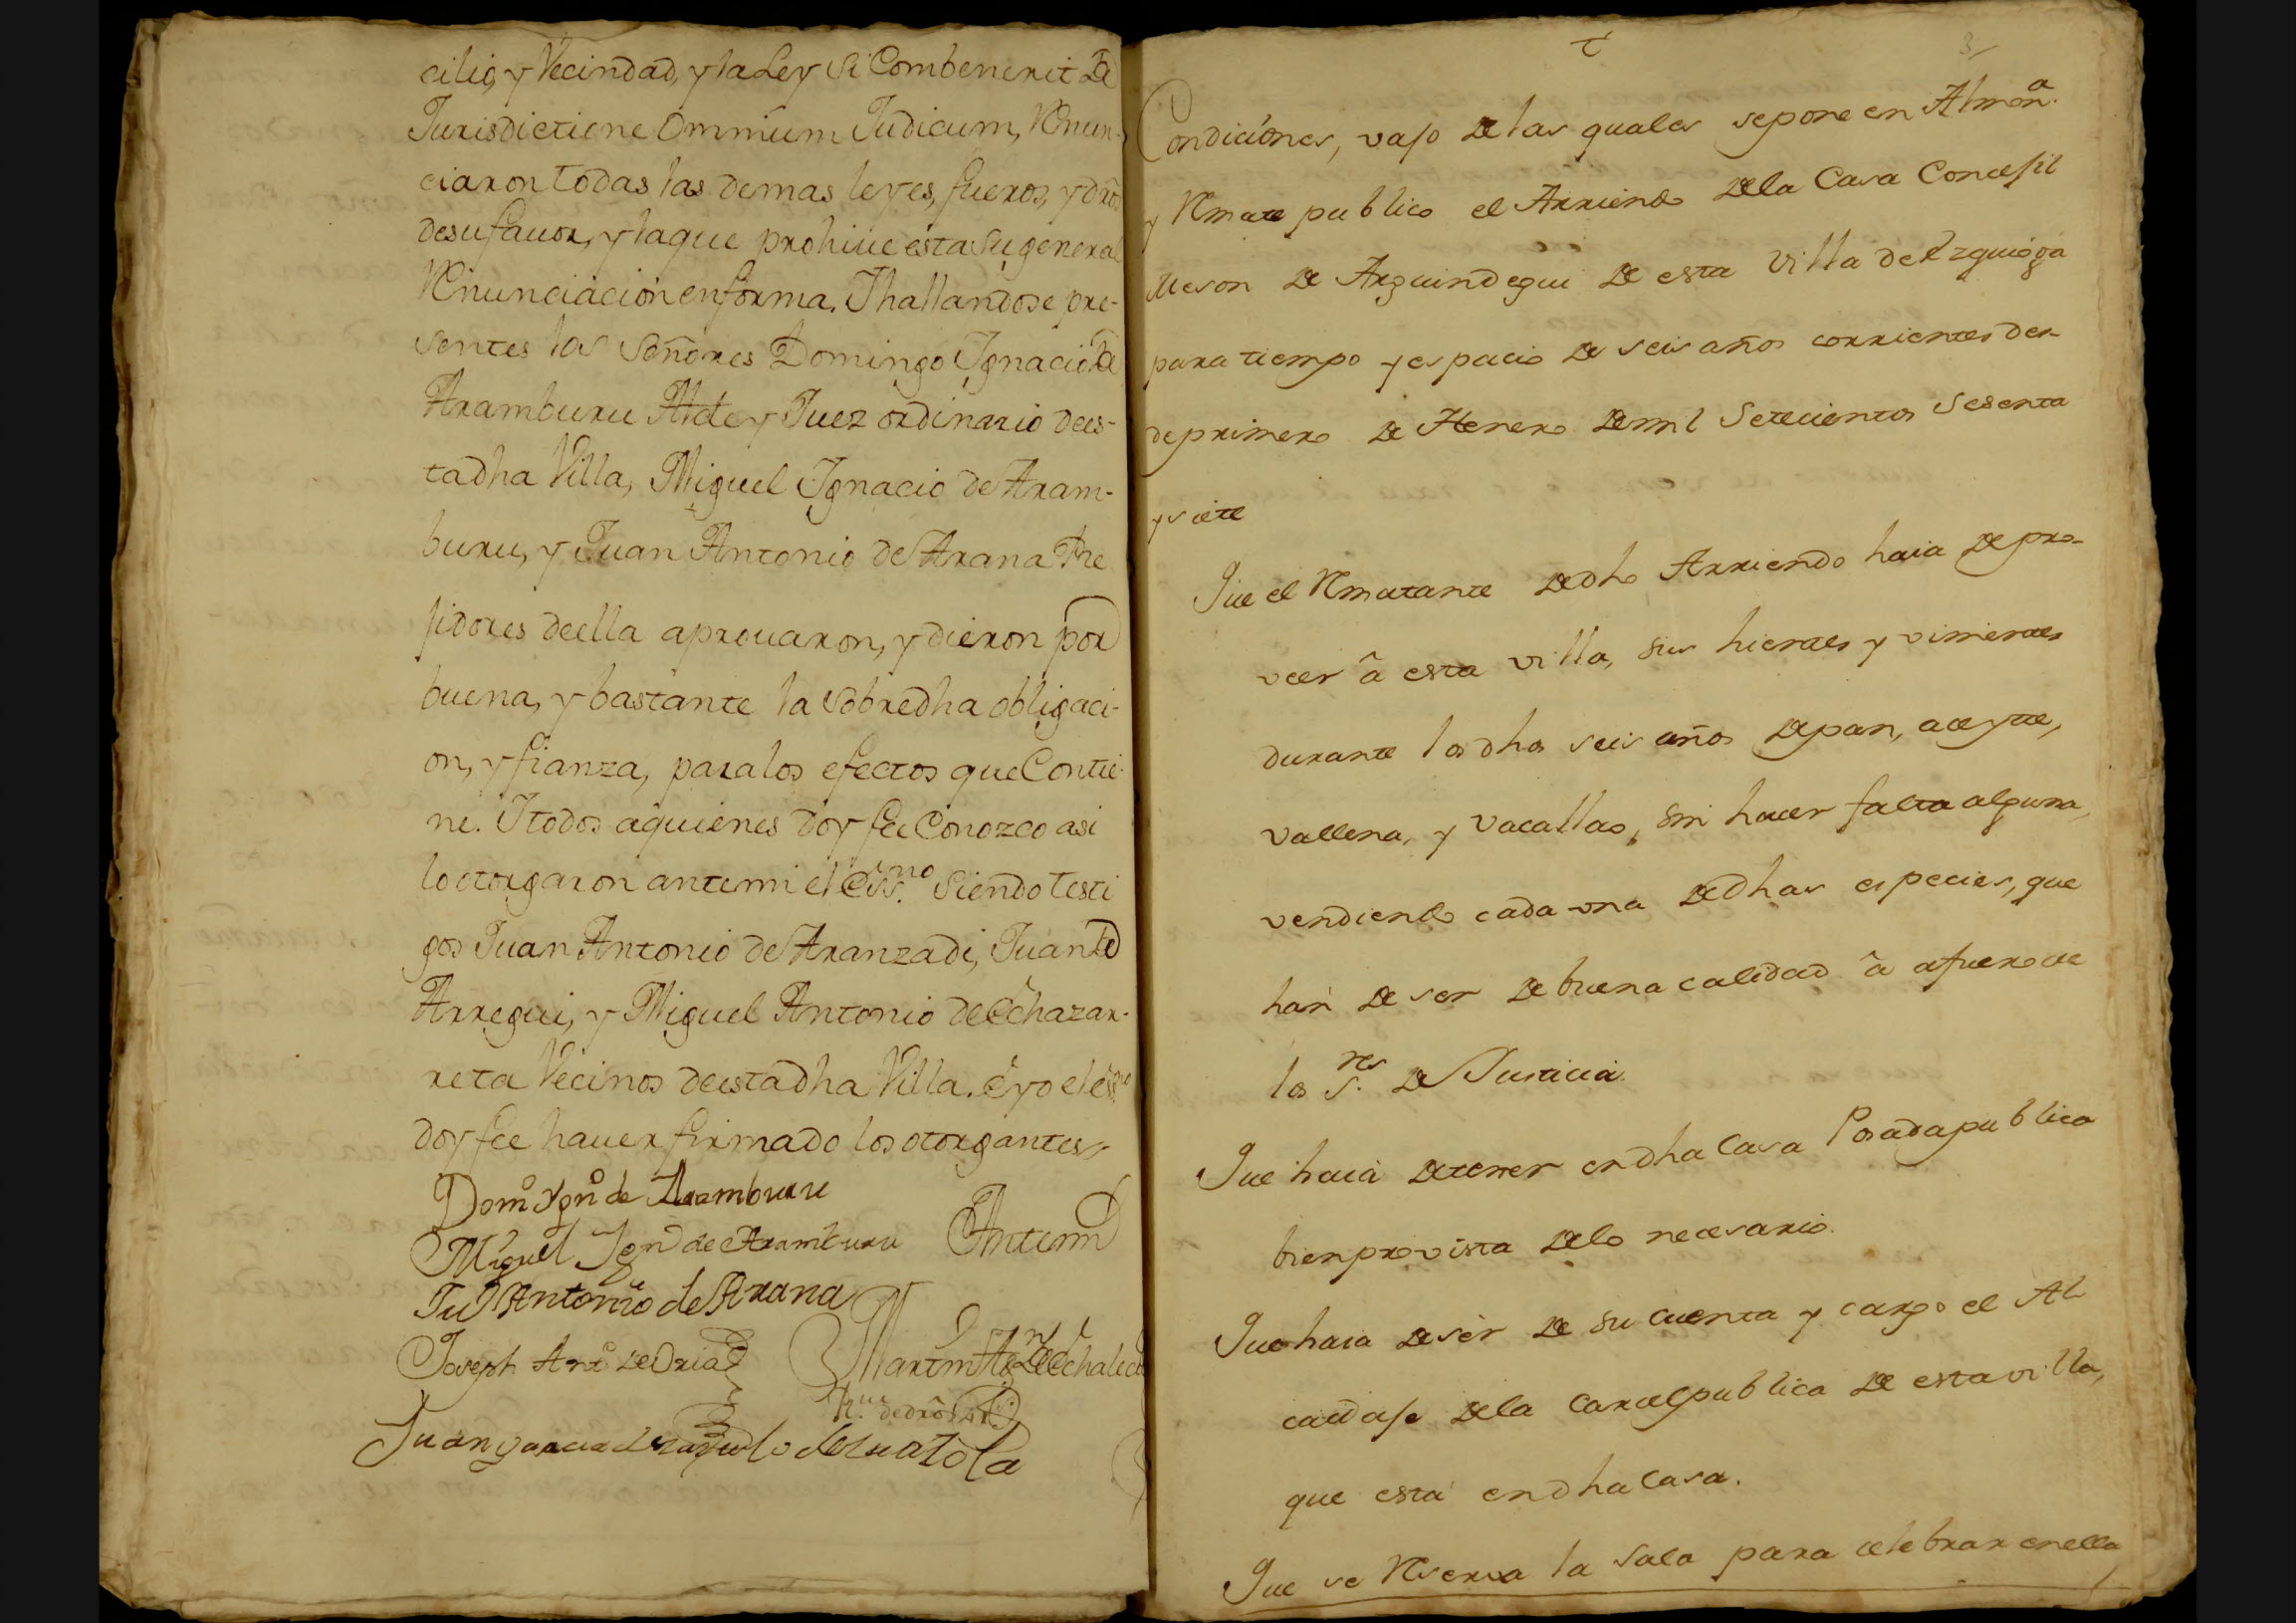 cilio, y Vecindad, y la Ley Si Combenerit de
Jurisdictione Omnium Judicum, Renun-
ciaron todas las demas leyes, fueros, y dros
de su favor, y la que prohive esta su general
Renunciacion en forma. Y hallandose pre-
sentes los Señores Domingo Ygnacio de
Aramburu Alcde y Juez ordinario de es-
ta dha Villa, Miguel Ygnacio de Aram-
buru, y Juan Antonio de Arana Re
jidores de ella aprouaron, y dieron por
buena, y bastante la sobredha obligaci-
on, y fianza, para los efectos que Contie-
ne. Y todos aquienes doy fee Conozco asi
lo otorgaron ante mi el Essno. Siendo testi
gos Juan Antonio de Aranzadi, Juan de
Arregui, y Miguel Antonio de Echazar-
reta Vecinos de esta dha Villa. é yo el essno
doy fee hauer firmado los otorgantes
Domo Ygno de Aramburu
Miguel Ygno de Aramburu Ante mi
Ju Antonio de Arana
Joseph Anto de Oria Martin Anto de Echalecu
Rus de dros
Juan Garcia de
Condiciones, vajo de las quales se pone en Almona.
y Remate publico el Arriendo de la Casa Concejil
Meson de Arguindegui de esta Villa de Ezquioga
para tiempo y espacio de seis años corrientes des-
de primero de Henero de mil Setecientos Sesenta
y siete
Que el Rematante de dho Arriendo haia de pro-
veer â esta villa, sus hientes y vinientes
durante los dhos seis años de pan, aceyte,
vallena, y vacallao, sin hacer falta alguna,
vendiendo cada una de dhas especies, que
han de ser de buena calidad â afuero de
los S.res de Justicia.
Que haia de tener en dha Casa Posada publica
bien provista de lo necesario.
Que haia de ser de su cuenta y cargo el Al
caidaje de la Carcel publica de esta villa,
que está en dha Casa.
Que se Reserva la Sala para celebrar en ella